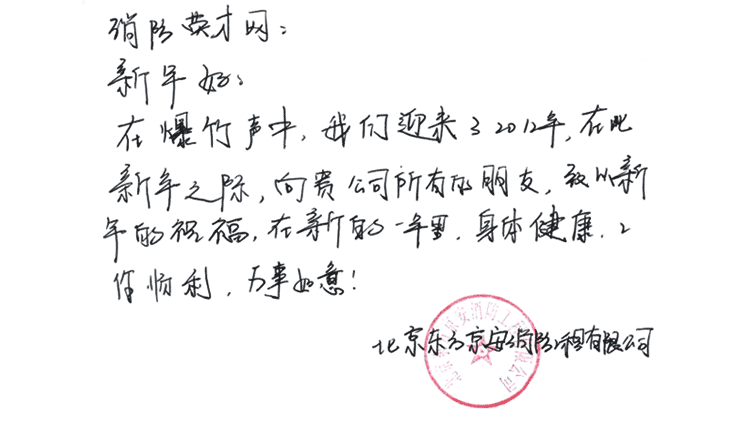 消防英才网：
新年好：
在爆竹声中，我们迎来了2012年，在此
新年之际，向贵公司所有的朋友，致以新
年的祝福，在新的一年里，身体健康，工
作顺利，万事如意！
北京东方京安消防工程有限公司